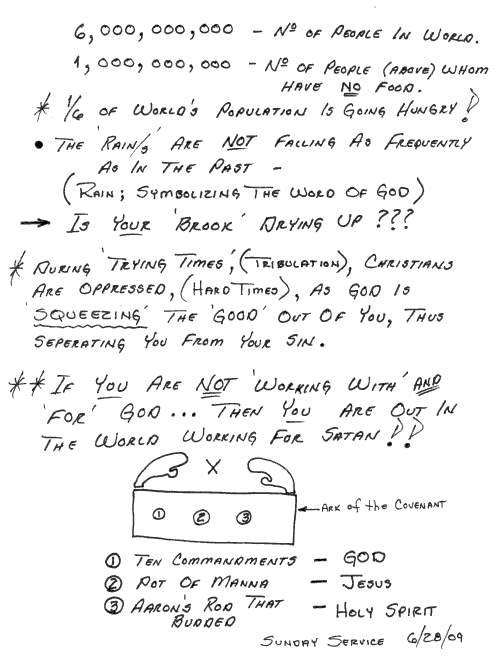 6,000,000,000 - Nº OF PEOPLE IN WORLD.
1,000,000,000 - Nº OF PEOPLE (ABOVE) WHOM
HAVE NO FOOD.
* 1/6 OF WORLD'S POPULATION IS GOING HUNGRY!
• THE 'RAIN/S' ARE NOT FALLING AS FREQUENTLY
AS IN THE PAST -
(RAIN; SYMBOLIZING THE WORD OF GOD)
→ IS YOUR 'BROOK' DRYING UP ???
* DURING 'TRYING TIMES', (TRIBULATION), CHRISTIANS
ARE OPPRESSED, (HARD TIMES), AS GOD IS
'SQUEEZING' THE 'GOOD' OUT OF YOU, THUS
SEPERATING YOU FROM YOUR SIN.
** IF YOU ARE NOT 'WORKING WITH' AND
'FOR' GOD... THEN YOU ARE OUT IN
THE WORLD WORKING FOR SATAN!!
X
① ② ③ ← ARK of the COVENANT
① TEN COMMANDMENTS - GOD
② POT OF MANNA - JESUS
③ AARON'S ROD THAT - HOLY SPIRIT
BUDDED
SUNDAY SERVICE 6/28/09